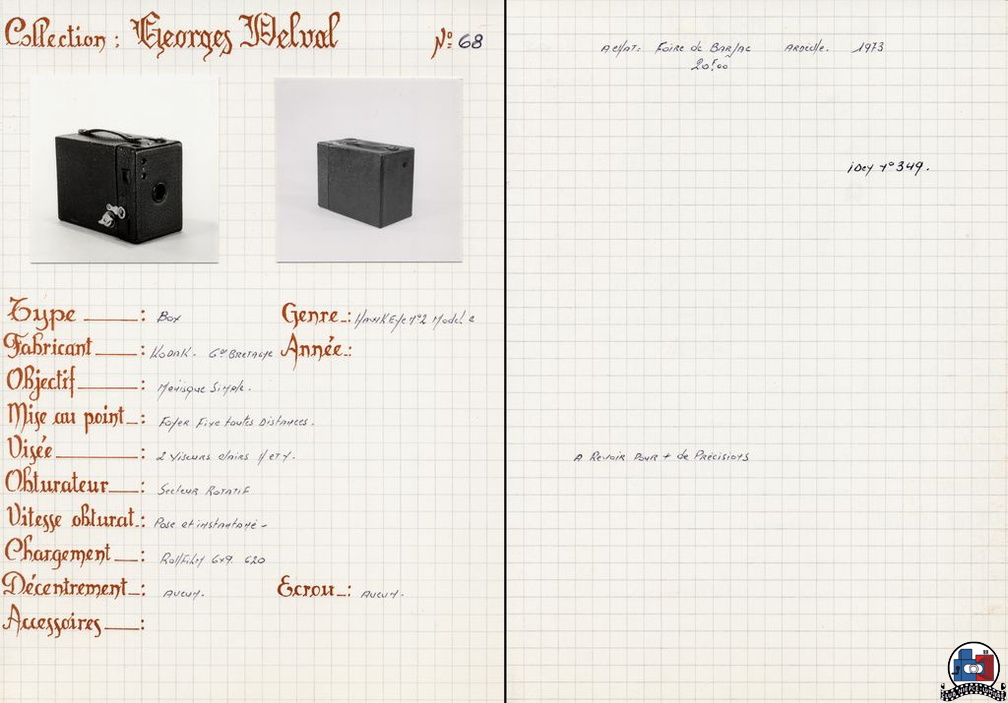 Collection : Georges Delval Nº 68
Type : Box
Genre : Hawkeye nº2 Model 2
Fabricant : Kodak. Gde Bretagne
Année :
Objectif : Ménisque Simple.
Mise au point : Foyer Fixe toutes Distances.
Visée : 2 Viseurs clairs H et V.
Obturateur : Secteur Rotatif
Vitesse obturat. : Pose et instantané -
Chargement : RollFilm 6x9. 620
Décentrement : Aucun.
Ecrou : Aucun.
Accessoires :
Achat: Foire de Barjac Ardèche. 1973
20F00
idem nº 349.
A Revoir Pour + de Précisions